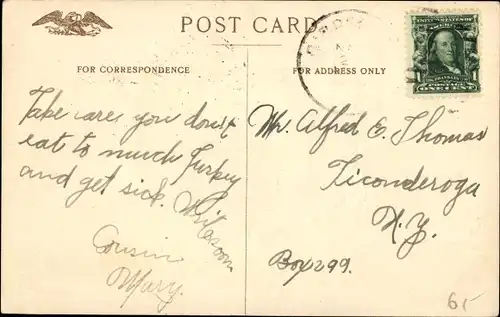 POST CARD
FOR CORRESPONDENCE
FOR ADDRESS ONLY
UNITED STATES OF AMERICA
FRANKLIN
POSTAGE
1 ONE CENT 1
Take care you don't
eat to much Turkey
and get sick. Write soon
Cousin
Mary.
Mr. Alfred E. Thomas
Ticonderoga
N.Y.
Box 299.
65